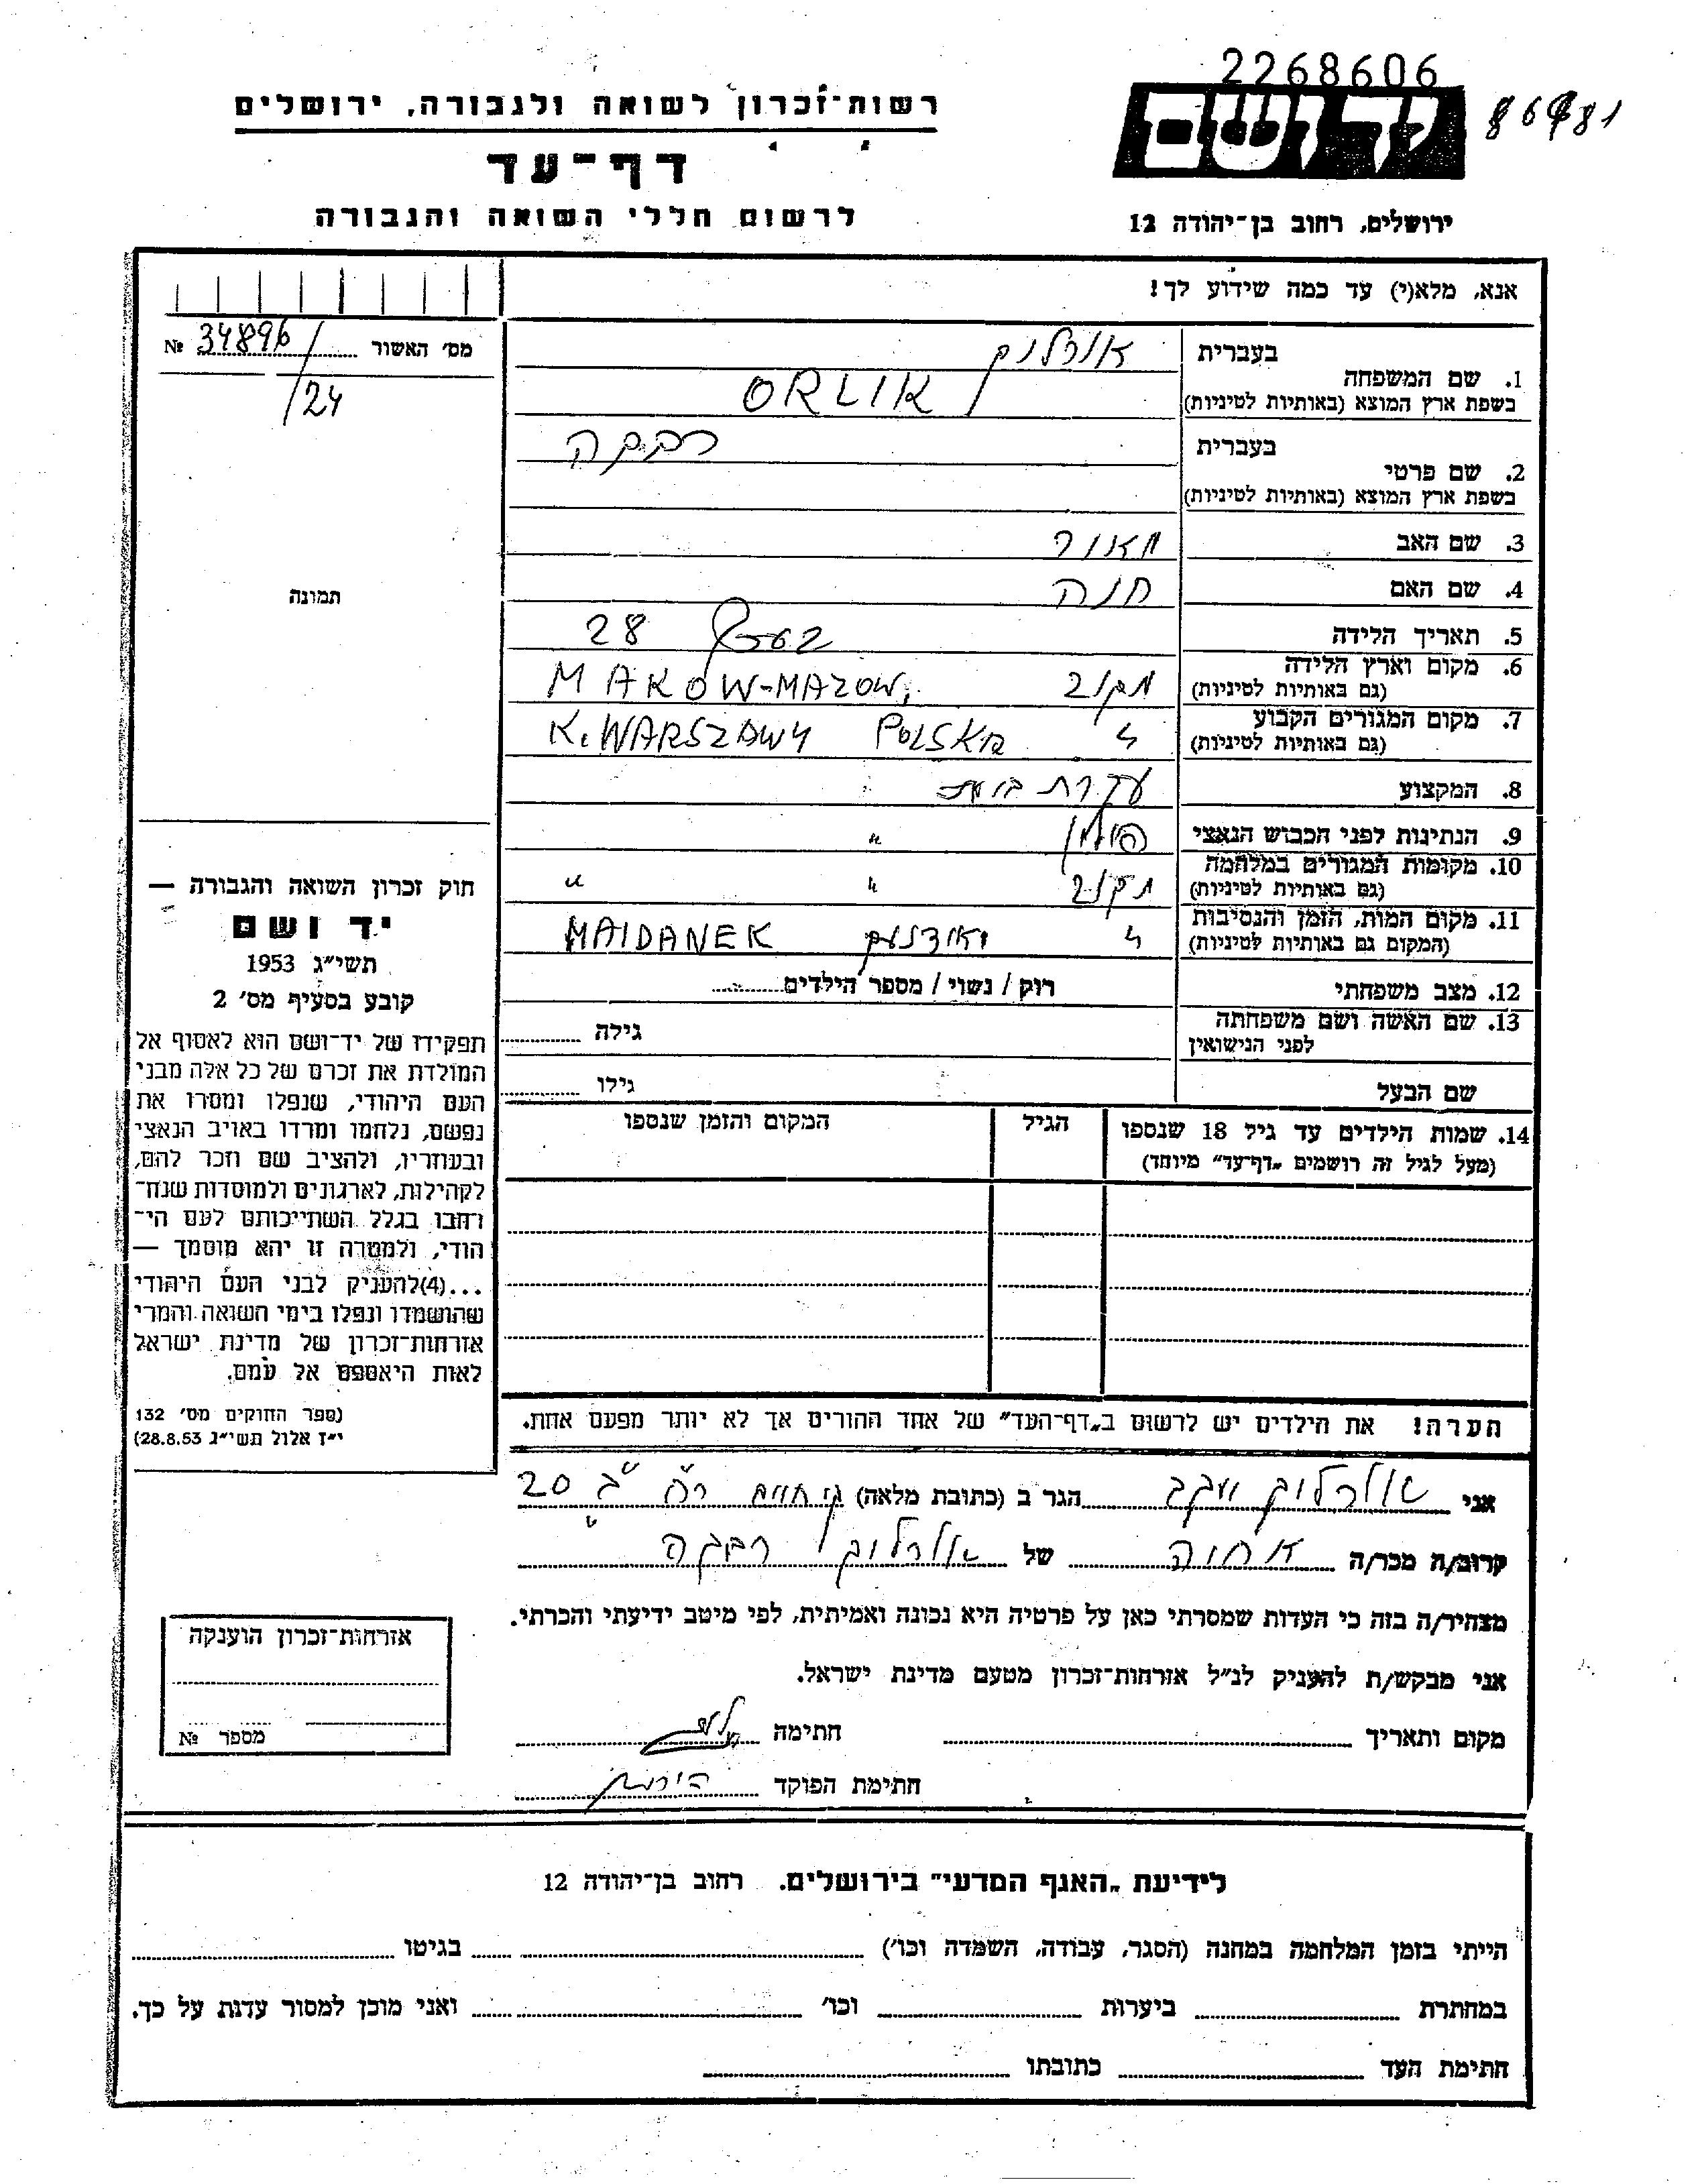 2268606
רשות־זכרון לשואה ולגבורה, ירושלים
יד ושם
דף־עד
לרשום חללי השואה והגבורה
ירושלים, רחוב בן־יהודה 12
אנא, מלא(י) עד כמה שידוע לך!
מס׳ האשור 34896 №
/24
1. שם המשפחה בעברית אורליק
בשפת ארץ המוצא (באותיות לטיניות) ORLIK
2. שם פרטי בעברית רבקה
בשפת ארץ המוצא (באותיות לטיניות)
3. שם האב מאור
4. שם האם חנה
תמונה
5. תאריך הלידה 28
6. מקום וארץ הלידה מקוב MAKOW-MAZOW,
(גם באותיות לטיניות)
7. מקום המגורים הקבוע " K.WARSZAWY POLSKA
(גם באותיות לטיניות)
8. המקצוע עקרת בית
9. הנתינות לפני הכבוש הנאצי פולין "
10. מקומות המגורים במלחמה מקוב " "
(גם באותיות לטיניות)
11. מקום המות, הזמן והנסיבות " מאידנק MAIDANEK
(המקום גם באותיות לטיניות)
12. מצב משפחתי רוק / נשוי / מספר הילדים
13. שם האשה ושם משפחתה גילה
לפני הנישואין
שם הבעל גילו
14. שמות הילדים עד גיל 18 שנספו הגיל המקום והזמן שנספו
(מעל לגיל זה רושמים „דף־עד״ מיוחד)
חוק זכרון השואה והגבורה —
יד ושם
תשי״ג 1953
קובע בסעיף מס׳ 2
תפקידו של יד־ושם הוא לאסוף אל
המולדת את זכרם של כל אלה מבני
העם היהודי, שנפלו ומסרו את
נפשם, נלחמו ומרדו באויב הנאצי
ובעוזריו, ולהציב שם וזכר להם,
לקהילות, לארגונים ולמוסדות שנח־
רבו בגלל השתייכותם לעם הי־
הודי, ולמטרה זו יהא מוסמך —
...(4)להעניק לבני העם היהודי
שהושמדו ונפלו בימי השואה והמרי
אזרחות־זכרון של מדינת ישראל
לאות היאספם אל עמם.
(ספר החוקים מס׳ 132
י״ז אלול תשי״ג 28.8.53)
הערה! את הילדים יש לרשום ב„דף־העד״ של אחד ההורים אך לא יותר מפעם אחת.
אני אורליק יעקב הגר ב (כתובת מלאה) 20
קרוב/ה מכר/ה אחיה של אורליק רבקה
מצהיר/ה בזה כי העדות שמסרתי כאן על פרטיה היא נכונה ואמיתית, לפי מיטב ידיעתי והכרתי.
אני מבקש/ת להעניק לנ״ל אזרחות־זכרון מטעם מדינת ישראל.
מקום ותאריך חתימה
חתימת הפוקד
אזרחות־זכרון הוענקה
מספר №
לידיעת „האגף המדעי״ בירושלים. רחוב בן־יהודה 12
הייתי בזמן המלחמה במחנה (הסגר, עבודה, השמדה וכו׳) בגיטו
במחתרת ביערות וכו׳ ואני מוכן למסור עדות על כך.
חתימת העד כתובתו